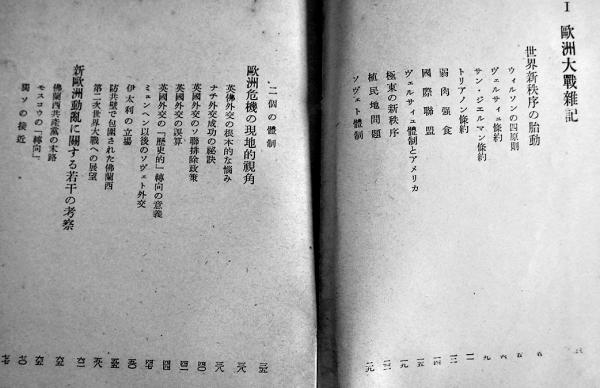 I 歐洲大戰雜記
世界新秩序の胎動
ウィルソンの四原則
ヴェルサイユ條約
サン・ジェルマン條約
トリアノン條約
弱肉强食
國際聯盟
ヴェルサイユ體制とアメリカ
極東の新秩序
植民地問題
ソヴェト體制
二個の體制
歐洲危機の現地的視角
英佛外交の根本的な惱み
ナチ外交成功の祕訣
英國外交のソ聯排除政策
英國外交の誤算
英國外交の「歷史的」轉向の意義
ミュンヘン以後のソヴェト外交
伊太利の立場
防共壁で包圍された佛蘭西
第二次世界大戰への展望
新歐洲動亂に關する若干の考察
佛蘭西共產黨の末路
モスコウの「轉向」
獨ソの接近